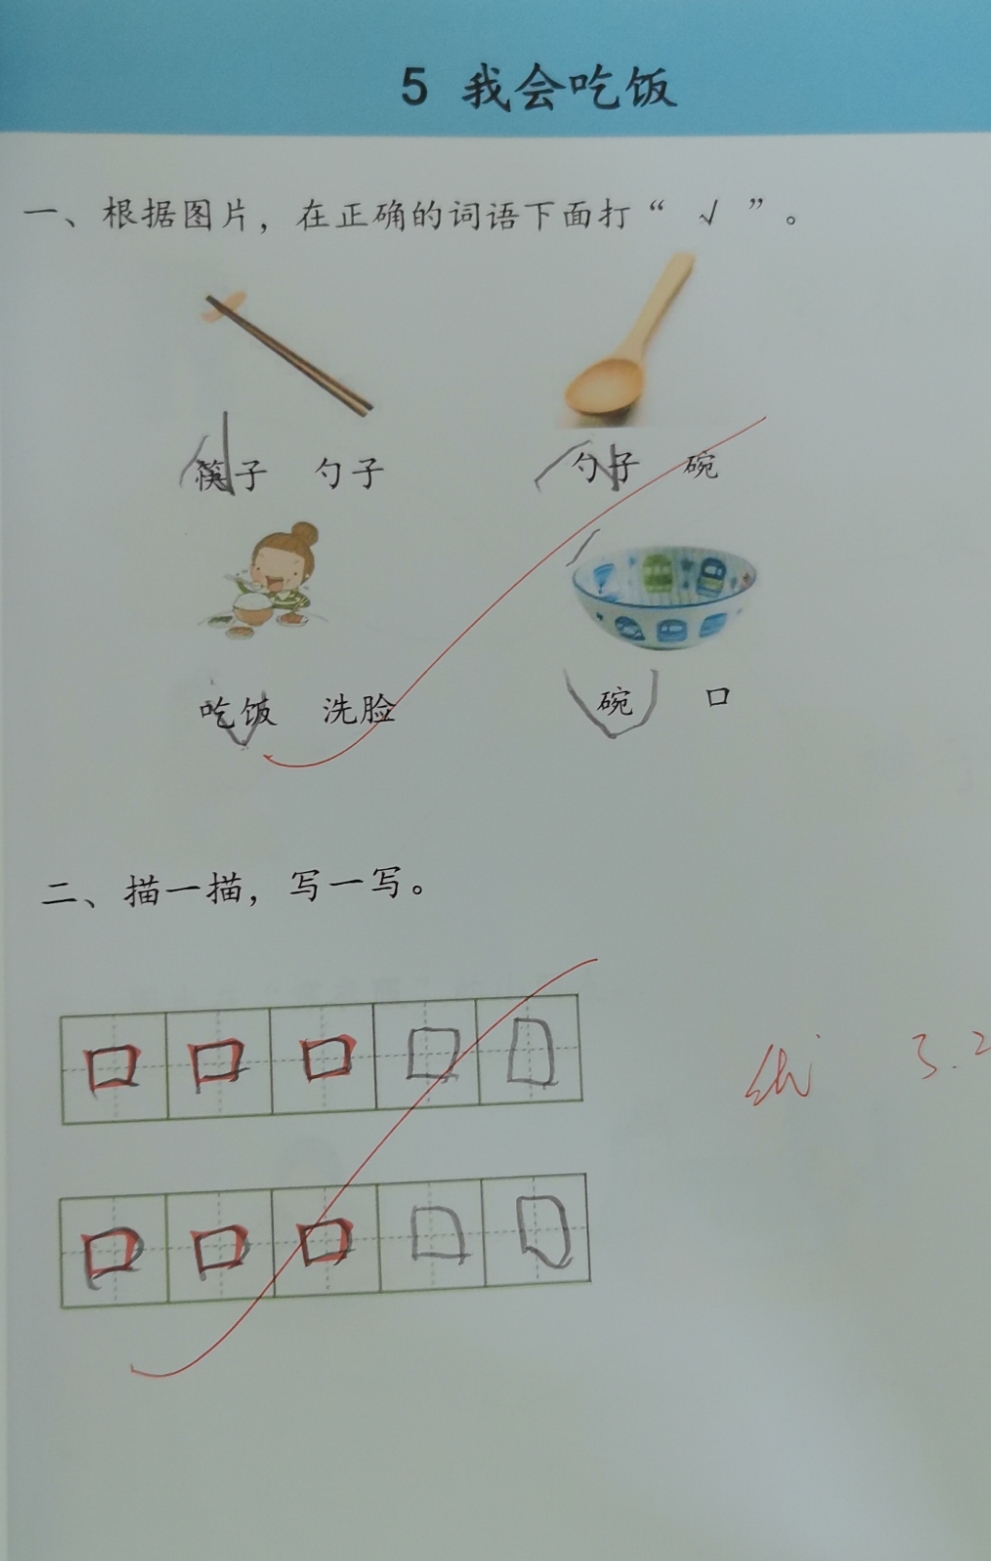 5 我会吃饭
一、根据图片，在正确的词语下面打“ √ ”。
筷子 勺子
勺子 碗
吃饭 洗脸
碗 口
二、描一描，写一写。
口 口 口 口 口
优 3.2
口 口 口 口 口